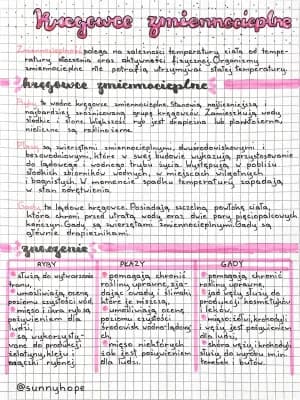 Kręgowce zmiennocieplne
Zmiennocieplność polega na zależności temperatury ciała od tempe-
ratury otoczenia oraz aktywności fizycznej. Organizmy
zmiennocieplne nie potrafią utrzymywać stałej temperatury.
kręgowce zmiennocieplne
Ryby to wodne kręgowce zmiennocieplne. Stanowią najliczniejszą i
najbardziej zróżnicowaną grupę kręgowców. Zamieszkują wody
słodkie i słone. Większość ryb jest drapieżna lub planktożerna,
nieliczne są roślinożerne.
Płazy są zwierzętami zmiennocieplnymi, dwuśrodowiskowymi i
bezowodniowymi, które w swej budowie wykazują przystosowanie
do lądowego i wodnego trybu życia. Występują w pobliżu
słodkich zbiorników wodnych, w miejscach wilgotnych
i bagnistych. W momencie spadku temperatury zapadają
w stan odrętwienia.
Gady to lądowe kręgowce. Posiadają szczelną powłokę ciała,
która chroni przed utratą wody oraz dwie pary pięciopalcowych
kończyn. Gady są zwierzętami zmiennocieplnymi. Gady są
głównie drapieżnikami.
znaczenie
RYBY
służą do wytwarzania
tranu,
umożliwiają ocenę
poziomu czystości wód,
mięso i ikra rybia
pożywieniem dla
ludzi,
są wykorzysty-
wane do produkcji
żelatyny, kleju i
mączki rybnej.
PŁAZY
pomagają chronić
rośliny uprawne, zja-
dając owady i ślimaki,
które je niszczą,
umożliwiają ocenę
poziomu czystości
środowisk wodno-lądowy-
ch,
mięso niektórych
żab jest pożywieniem
dla ludzi.
GADY
pomagają chronić
rośliny uprawne,
jad węży służy do
produkcji kosmetyków
i leków,
mięso: żółwi, krokodyli
i węży jest pożywieniem
dla ludzi,
skóra węży i krokodyli
służą do wyrobu min.
torebek i butów.
@sunnyhope